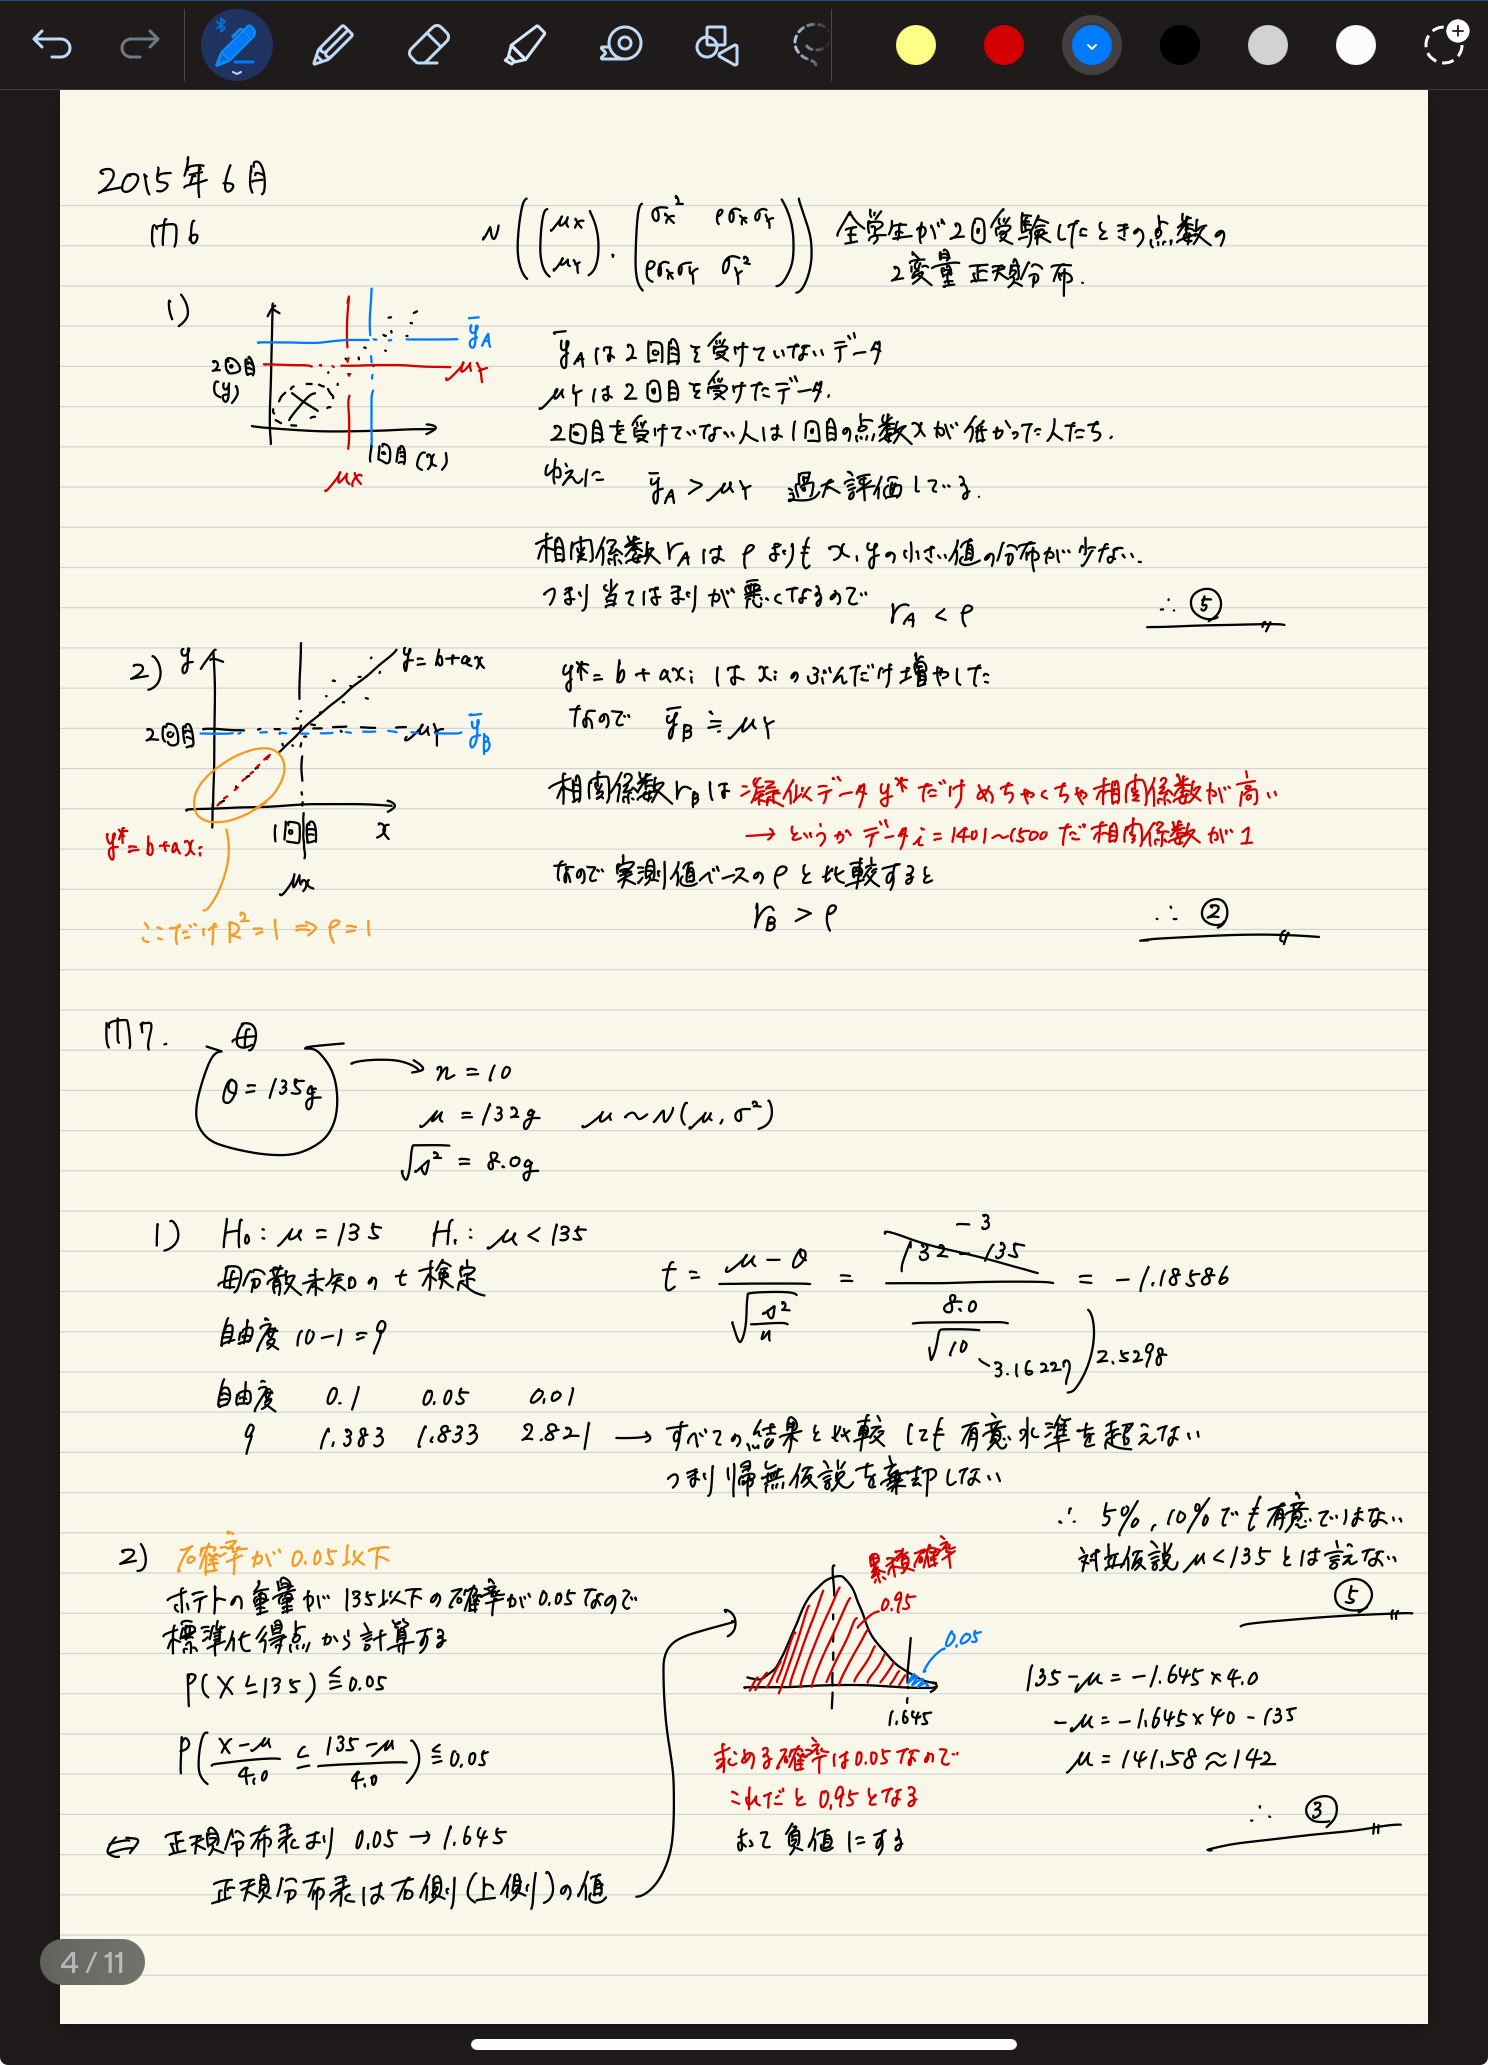 2015年6月
問6
N((μx μY), (σx² ρσxσY ρσxσY σY²)) 全学生が2回受験したときの点数の
2変量正規分布.
1)
2回目
(y)
ȳA
μY
1回目(x)
μx
ȳAは2回目を受けていないデータ
μYは2回目を受けたデータ.
2回目を受けていない人は1回目の点数xが低かった人たち.
ゆえに ȳA > μY 過大評価している.
相関係数rAはρよりもx,yの小さい値の分布が少ない.
つまり当てはまりが悪くなるので rA < ρ
∴ ⑤
2) y
y=b+ax
2回目
μY
ȳB
1回目 x
μx
y*=b+axi
ここだけR²=1 ⇒ ρ=1
y*= b + axi は xi のぶんだけ増やした
なので ȳB ≒ μY
相関係数rBは擬似データy*だけめちゃくちゃ相関係数が高い
→ どうかデータi=1401~1500だ相関係数が1
なので実測値ベースのρと比較すると
rB > ρ
∴ ②
問7.
⊕
θ=135g
n=10
μ=132g μ~N(μ, σ²)
√s² = 8.0g
1) H0: μ=135 H1: μ<135
母分散未知のt検定
自由度 10-1=9
t = (μ-θ)/√(s²/n) = (132-135)/(8.0/√10) = -1.18586
-3
3.16227
2.5298
自由度 0.1 0.05 0.01
9 1.383 1.833 2.821 → すべての結果と比較しても有意水準を超えない
つまり帰無仮説を棄却しない
∴ 5%, 10%でも有意ではない
対立仮説μ<135とは言えない
⑤
2) 確率が0.05以下
ポテトの重量が135以下の確率が0.05なので
標準化得点から計算する
P(X≦135)≦0.05
P((X-μ)/4.0 ≦ (135-μ)/4.0)≦0.05
⇔ 正規分布表より 0.05→1.645
正規分布表は右側(上側)の値
累積確率
0.95
0.05
1.645
求める確率は0.05なので
これだと0.95となる
よって負値にする
135-μ=-1.645×4.0
-μ=-1.645×40-135
μ=141.58≈142
∴ ③
4 / 11